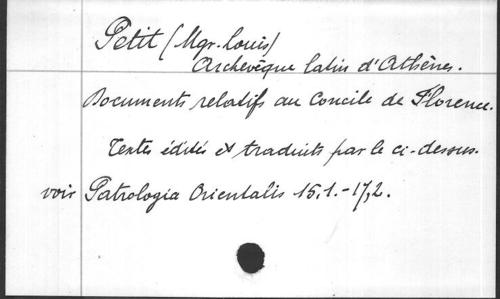 Petit (Mgr. Louis)
Archevêque latin d'Athènes.
Documents relatifs au Concile de Florence.
Textes édités et traduits par le ci-dessus.
voir Patrologia Orientalis 15,1.-17,2.